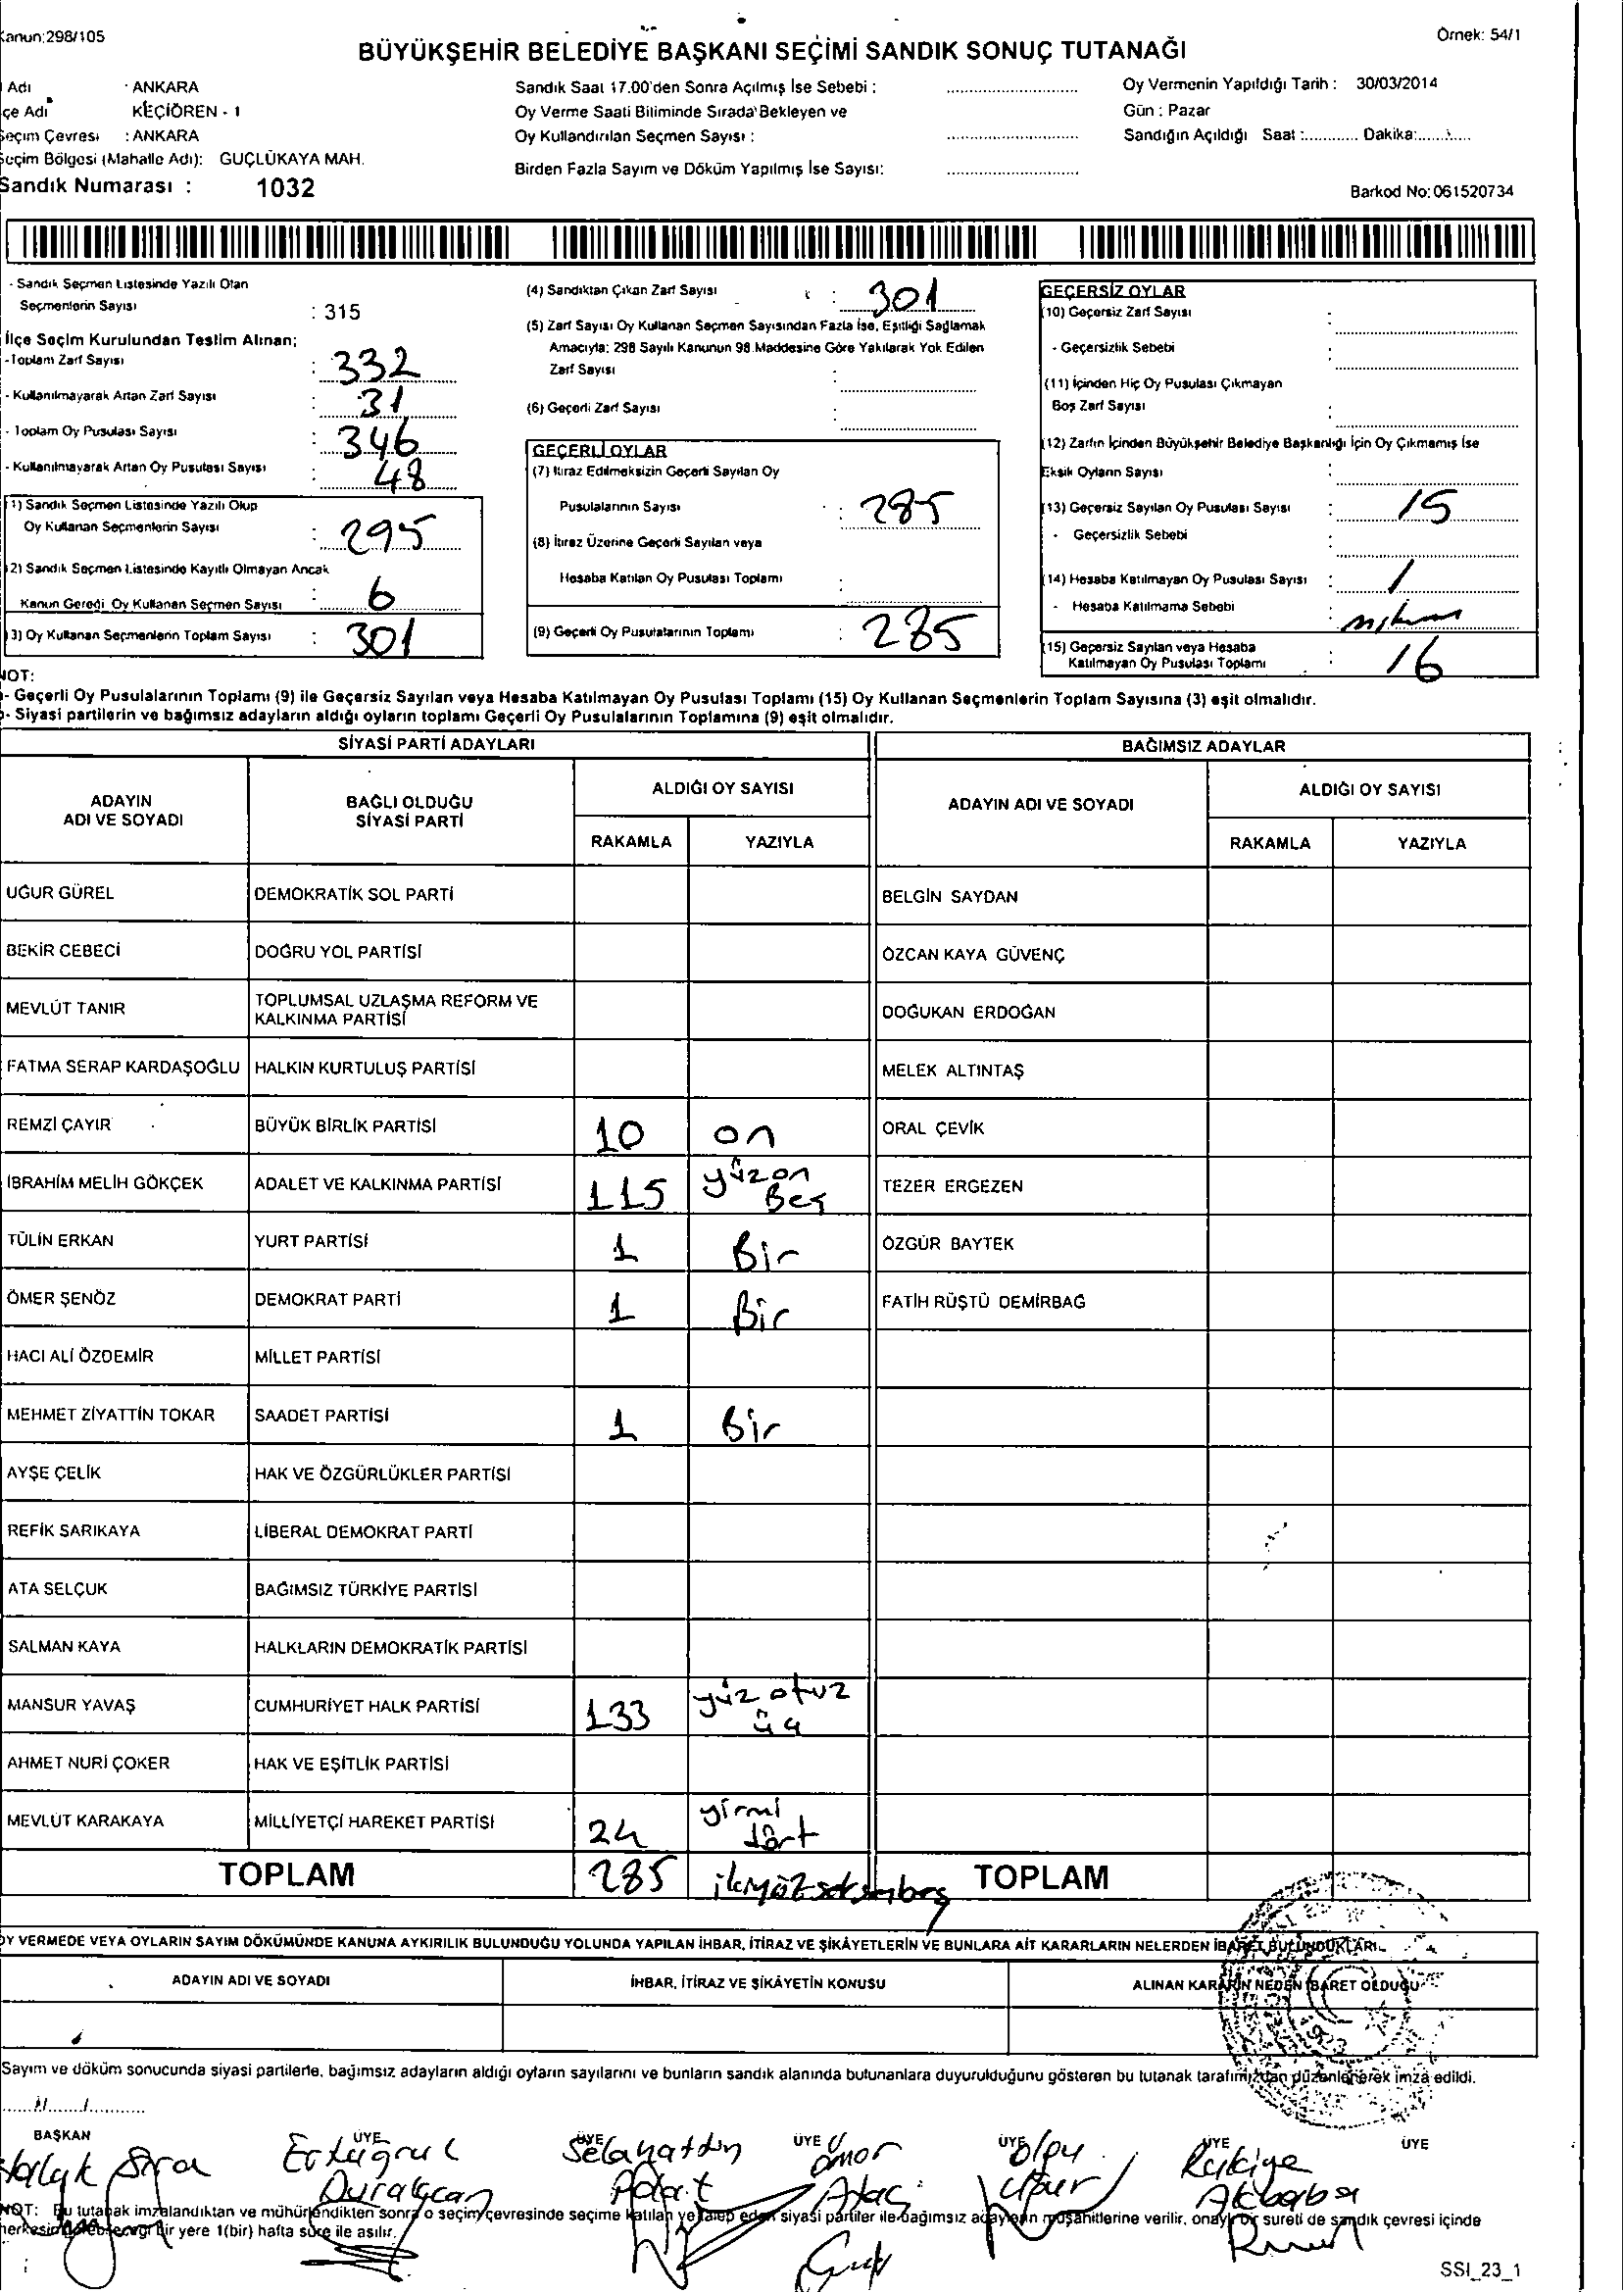 Kanun:298/105
Örnek: 54/1
BÜYÜKŞEHİR BELEDİYE BAŞKANI SEÇİMİ SANDIK SONUÇ TUTANAĞI
Adı : ANKARA
çe Adı KEÇİÖREN - 1
Seçim Çevresi : ANKARA
Seçim Bölgesi (Mahalle Adı): GUÇLÜKAYA MAH.
Sandık Numarası : 1032
Sandık Saat 17.00'den Sonra Açılmış İse Sebebi :
Oy Verme Saati Bitiminde Sırada Bekleyen ve
Oy Kullandırılan Seçmen Sayısı :
Birden Fazla Sayım ve Döküm Yapılmış İse Sayısı:
Oy Vermenin Yapıldığı Tarih : 30/03/2014
Gün : Pazar
Sandığın Açıldığı Saat :............ Dakika:............
Barkod No: 061520734
- Sandık Seçmen Listesinde Yazılı Olan
Seçmenlerin Sayısı : 315
İlçe Seçim Kurulundan Teslim Alınan;
- Toplam Zarf Sayısı : 332
- Kullanılmayarak Artan Zarf Sayısı : 31
- Toplam Oy Pusulası Sayısı : 346
- Kullanılmayarak Artan Oy Pusulası Sayısı : 48
1) Sandık Seçmen Listesinde Yazılı Olup
Oy Kullanan Seçmenlerin Sayısı : 295
2) Sandık Seçmen Listesinde Kayıtlı Olmayan Ancak
Kanun Gereği Oy Kullanan Seçmen Sayısı : 6
3) Oy Kullanan Seçmenlerin Toplam Sayısı : 301
(4) Sandıktan Çıkan Zarf Sayısı : 301
(5) Zarf Sayısı Oy Kullanan Seçmen Sayısından Fazla İse, Eşitliği Sağlamak
Amacıyla; 298 Sayılı Kanunun 98.Maddesine Göre Yakılarak Yok Edilen
Zarf Sayısı :
(6) Geçerli Zarf Sayısı :
GEÇERLİ OYLAR
(7) İtiraz Edilmeksizin Geçerli Sayılan Oy
Pusulalarının Sayısı : 285
(8) İtiraz Üzerine Geçerli Sayılan veya
Hesaba Katılan Oy Pusulası Toplamı :
(9) Geçerli Oy Pusulalarının Toplamı : 285
GEÇERSİZ OYLAR
(10) Geçersiz Zarf Sayısı :
- Geçersizlik Sebebi :
(11) İçinden Hiç Oy Pusulası Çıkmayan
Boş Zarf Sayısı :
(12) Zarfın İçinden Büyükşehir Belediye Başkanlığı İçin Oy Çıkmamış İse
Eksik Oyların Sayısı :
(13) Geçersiz Sayılan Oy Pusulası Sayısı : 15
- Geçersizlik Sebebi :
(14) Hesaba Katılmayan Oy Pusulası Sayısı : 1
- Hesaba Katılmama Sebebi :
(15) Geçersiz Sayılan veya Hesaba
Katılmayan Oy Pusulası Toplamı : 16
NOT:
- Geçerli Oy Pusulalarının Toplamı (9) ile Geçersiz Sayılan veya Hesaba Katılmayan Oy Pusulası Toplamı (15) Oy Kullanan Seçmenlerin Toplam Sayısına (3) eşit olmalıdır.
- Siyasi partilerin ve bağımsız adayların aldığı oyların toplamı Geçerli Oy Pusulalarının Toplamına (9) eşit olmalıdır.
SİYASİ PARTİ ADAYLARI BAĞIMSIZ ADAYLAR
ADAYIN ADI VE SOYADI BAĞLI OLDUĞU SİYASİ PARTİ ALDIĞI OY SAYISI ADAYIN ADI VE SOYADI ALDIĞI OY SAYISI
RAKAMLA YAZIYLA RAKAMLA YAZIYLA
UĞUR GÜREL DEMOKRATİK SOL PARTİ BELGİN SAYDAN
BEKİR CEBECİ DOĞRU YOL PARTİSİ ÖZCAN KAYA GÜVENÇ
MEVLÜT TANIR TOPLUMSAL UZLAŞMA REFORM VE KALKINMA PARTİSİ DOĞUKAN ERDOĞAN
FATMA SERAP KARDAŞOĞLU HALKIN KURTULUŞ PARTİSİ MELEK ALTINTAŞ
REMZİ ÇAYIR BÜYÜK BİRLİK PARTİSİ 10 on ORAL ÇEVİK
İBRAHİM MELİH GÖKÇEK ADALET VE KALKINMA PARTİSİ 115 yüzon Beş TEZER ERGEZEN
TÜLİN ERKAN YURT PARTİSİ 1 Bir ÖZGÜR BAYTEK
ÖMER ŞENÖZ DEMOKRAT PARTİ 1 Bir FATİH RÜŞTÜ DEMİRBAĞ
HACI ALİ ÖZDEMİR MİLLET PARTİSİ
MEHMET ZİYATTİN TOKAR SAADET PARTİSİ 1 Bir
AYŞE ÇELİK HAK VE ÖZGÜRLÜKLER PARTİSİ
REFİK SARIKAYA LİBERAL DEMOKRAT PARTİ
ATA SELÇUK BAĞIMSIZ TÜRKİYE PARTİSİ
SALMAN KAYA HALKLARIN DEMOKRATİK PARTİSİ
MANSUR YAVAŞ CUMHURİYET HALK PARTİSİ 133 yüz otuz üç
AHMET NURİ ÇOKER HAK VE EŞİTLİK PARTİSİ
MEVLÜT KARAKAYA MİLLİYETÇİ HAREKET PARTİSİ 24 yirmi dört
TOPLAM 285 ikiyüzseksenbeş TOPLAM
OY VERMEDE VEYA OYLARIN SAYIM DÖKÜMÜNDE KANUNA AYKIRILIK BULUNDUĞU YOLUNDA YAPILAN İHBAR, İTİRAZ VE ŞİKÂYETLERİN VE BUNLARA AİT KARARLARIN NELERDEN İBARET BULUNDUKLARI
ADAYIN ADI VE SOYADI İHBAR, İTİRAZ VE ŞİKÂYETİN KONUSU ALINAN KARARIN NEDEN İBARET OLDUĞU
Sayım ve döküm sonucunda siyasi partilerle, bağımsız adayların aldığı oyların sayılarını ve bunların sandık alanında bulunanlara duyurulduğunu gösteren bu tutanak tarafımızdan düzenlenerek imza edildi.
BAŞKAN ÜYE ÜYE ÜYE ÜYE ÜYE ÜYE
Ertuğrul Selahattin Rukiye
Polat Ataç Uğur Akbaba
NOT: Bu tutanak imzalandıktan ve mühürlendikten sonra o seçim çevresinde seçime katılan ve talep eden siyasi partiler ile bağımsız adayların müşahitlerine verilir, onaylı bir sureti de sandık çevresi içinde
herkesin görebileceği bir yere 1(bir) hafta süre ile asılır.
SSI_23_1